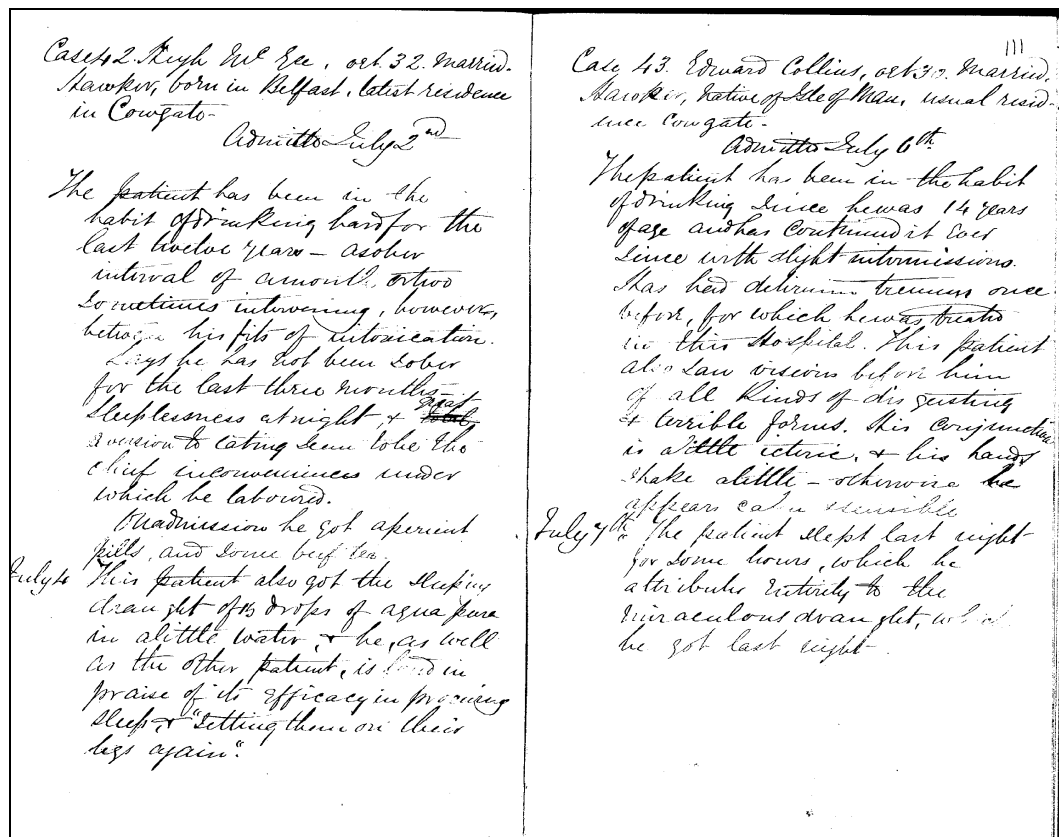 Case 42. Hugh Mc Gee, aet. 32. Married.
Hawker, born in Belfast, latest residence
in Cowgate -
Admitted July 2nd
The patient has been in the
habit of drinking hard for the
last twelve years - a sober
interval of a month or two
sometimes intervening, however,
between his fits of intoxication.
Says he has not been sober
for the last three months
sleeplessness at night, & great total
aversion to eating seem to be the
chief inconveniences under
which he laboured.
On admission he got aperient
pills, and some beef tea.
July 4 This patient also got the sleeping
draught of 15 drops of aqua pura
in a little water, & he, as well
as the other patient, is loud in
praise of its efficacy in procuring
sleep, & "setting them on their
legs again".
111
Case 43. Edward Collins, aet 30. Married.
Hawker, Native of Isle of Man, usual resid-
ence Cowgate -
Admitted July 6th
The patient has been in the habit
of drinking since he was 14 years
of age and has continued it ever
since with slight intermissions.
Has had delirium tremens once
before, for which he was treated
in this Hospital. This patient
also saw visions before him
of all kinds of disgusting
& terrible forms. His conjunctiva
is a little icteric, & his hands
shake a little - otherwise he
appears calm & sensible
July 7th. The patient slept last night
for some hours, which he
attributes entirely to the
miraculous draught, which
he got last night -